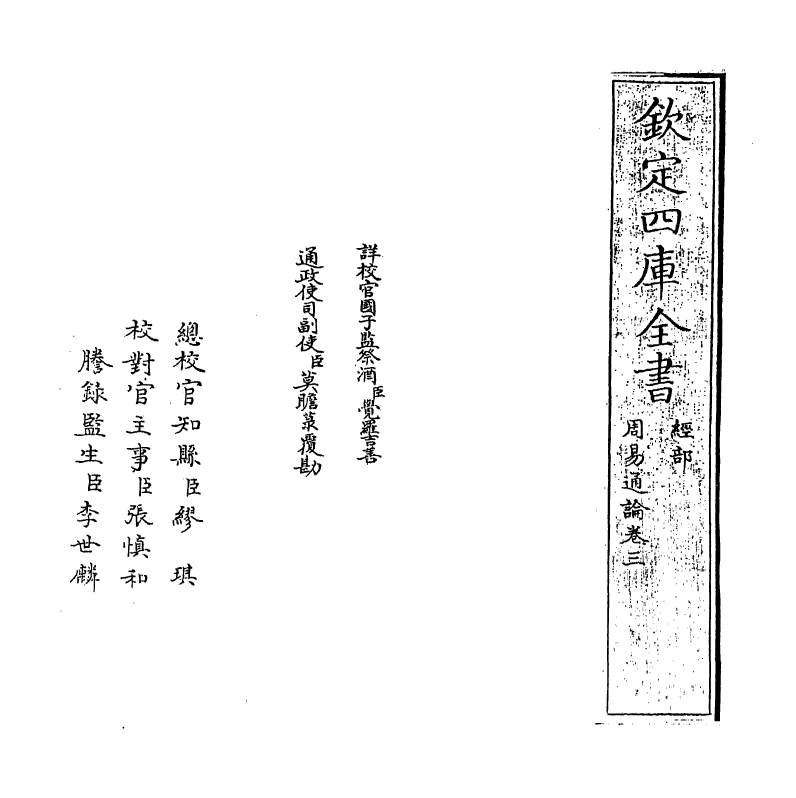 欽定四庫全書
經部
周易通論卷三
詳校官國子監祭酒臣覺羅吉善
通政使司副使臣莫瞻菉覆勘
總校官知縣臣繆琪
校對官主事臣張慎和
謄錄監生臣李世麟